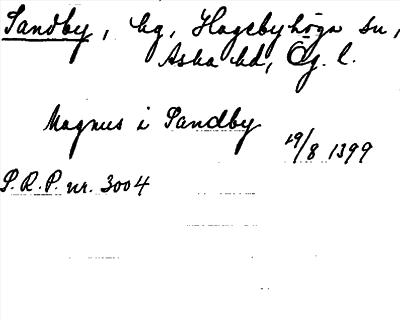 Sandby, by, Hagebyhöga sn,
Aska hd, Ög. l.
Magnus i Sandby
19/8 1399
P.R.P. nr. 3004